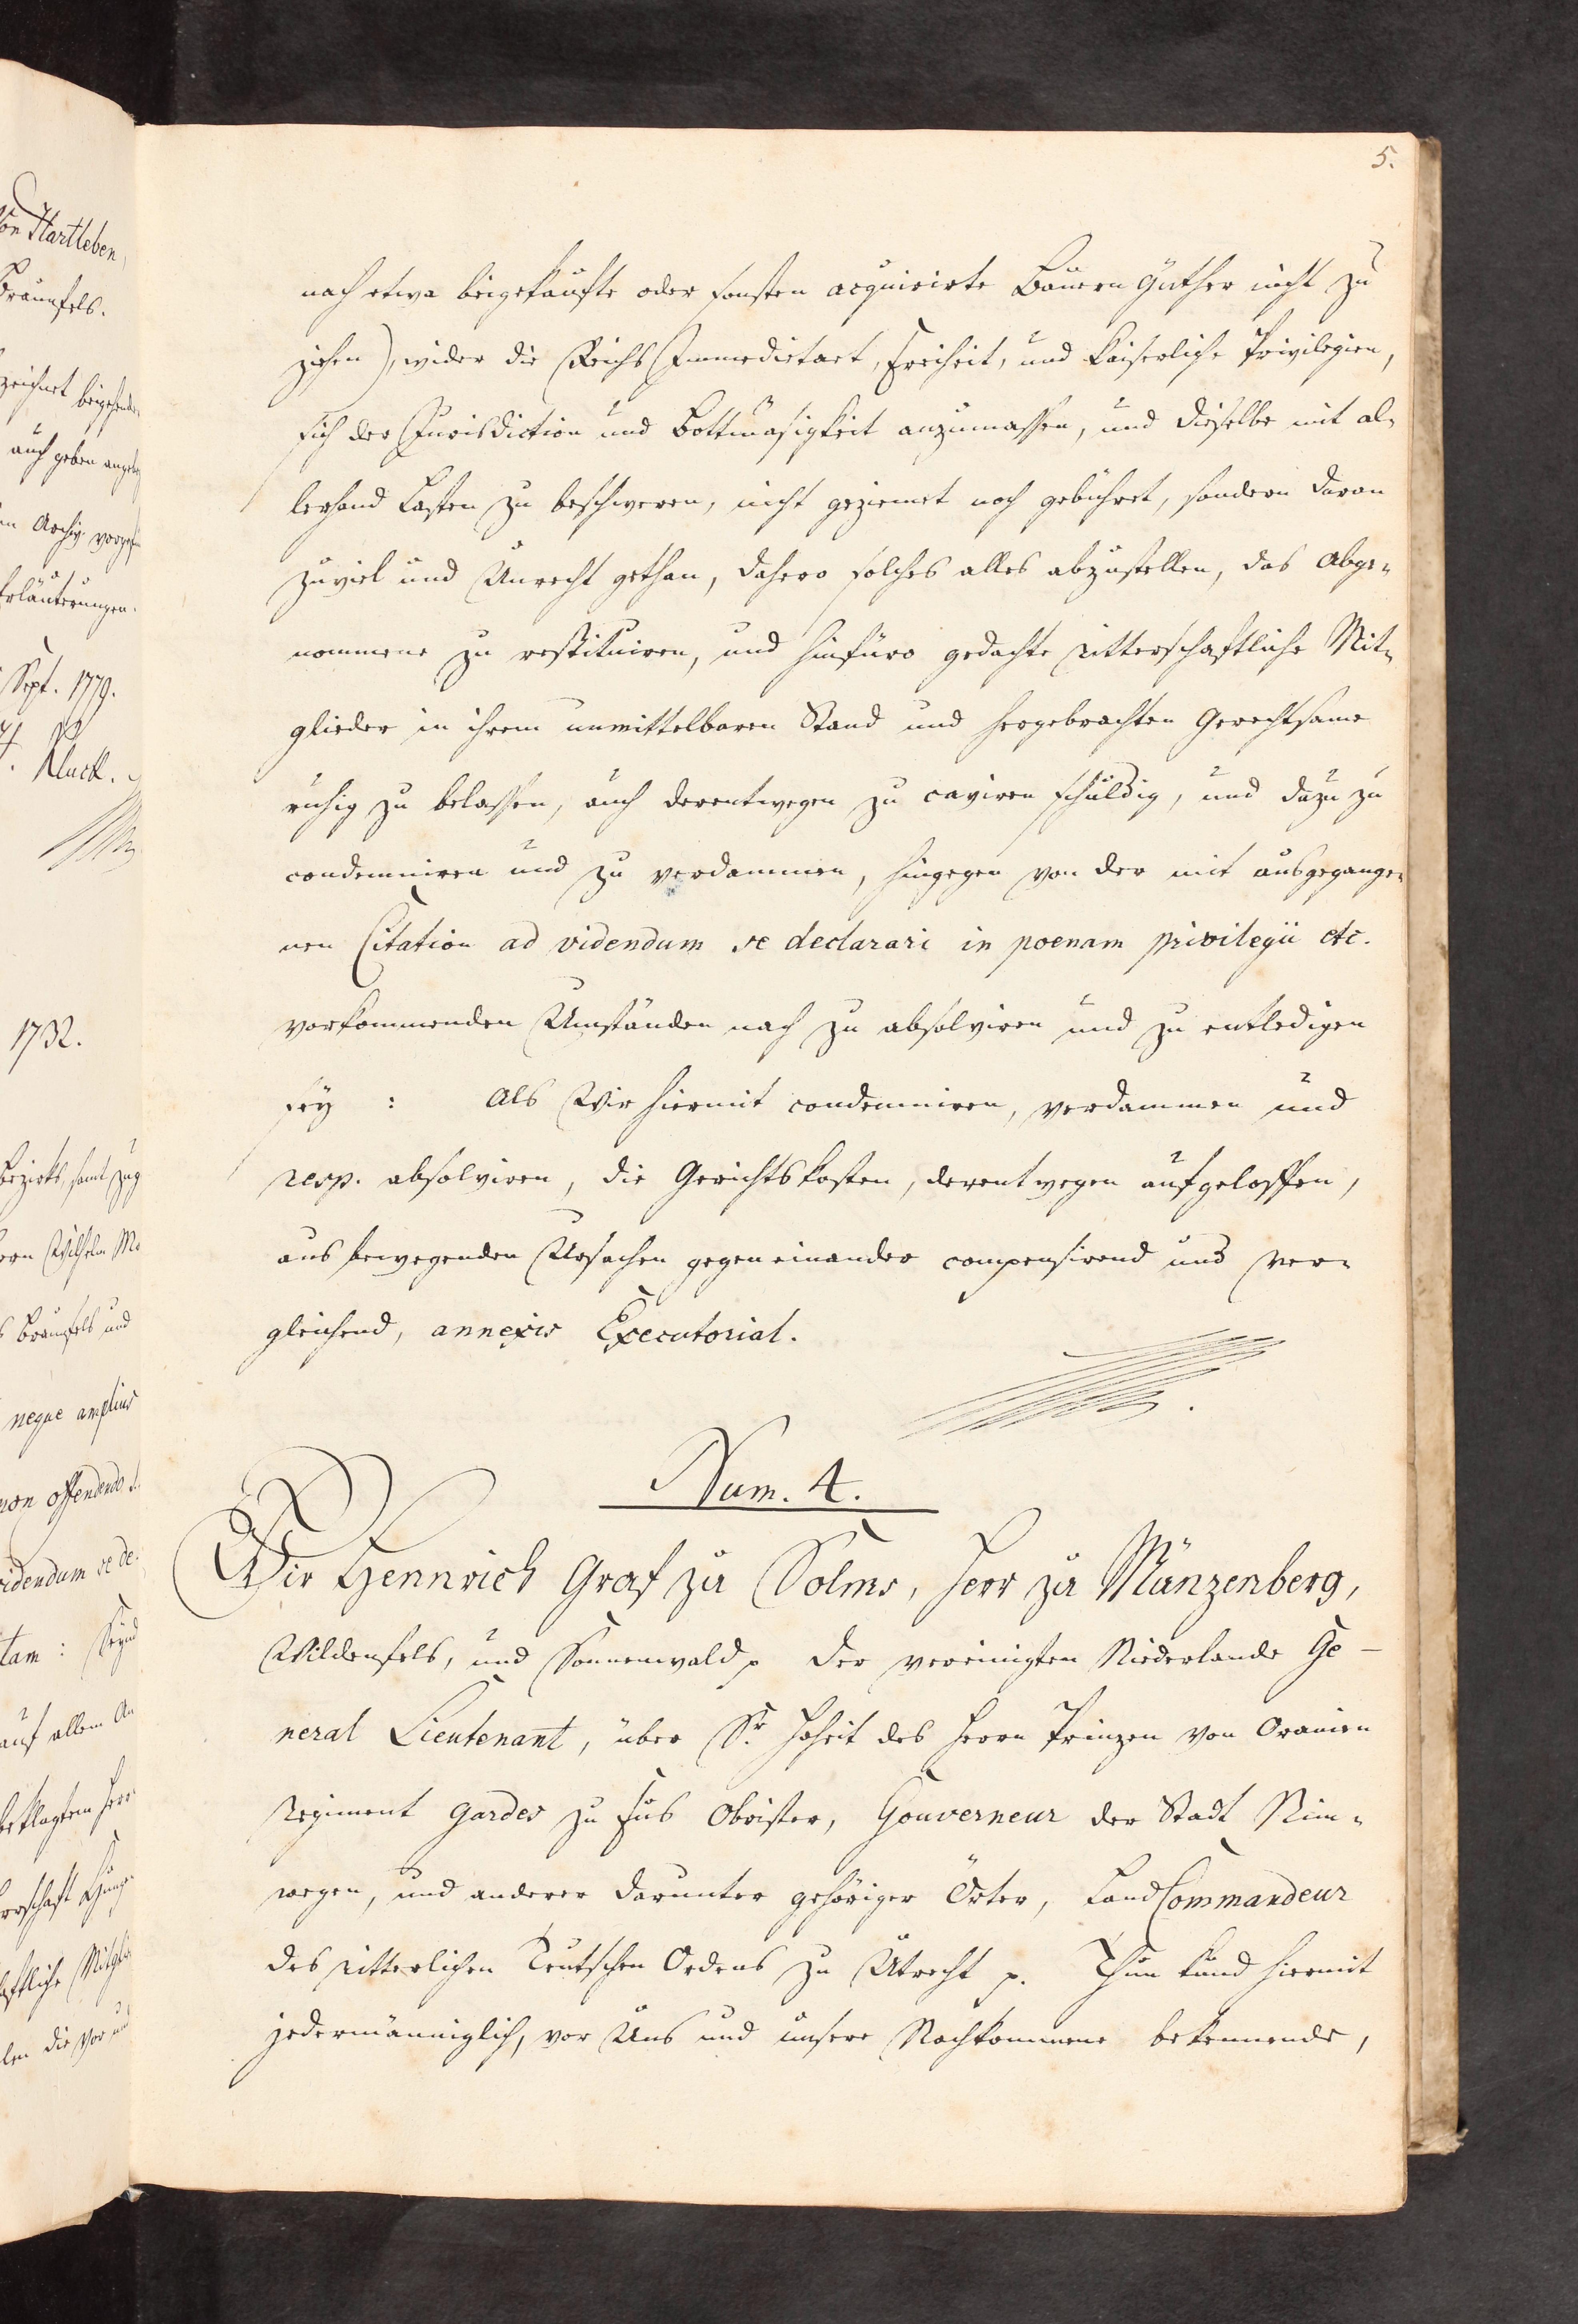 5.
nach etwa beigekaufte oder sonsten acquirirte Bauern Güther nicht zu
ziehen), wider die Reichs Immedietaet, Freiheit, und Kaiserliche Privilegien,
sich der Jurisdiction und Bottmäsigkeit anzumassen, und dieselbe mit al-
lerhand Lasten zu beschweren, nicht geziemet noch gebühret, sondern daran
zuviel und Unrecht gethan, dahero solches alles abzustellen, das Abge-
nommene zu restituiren, und hinfüro gedachte ritterschaftliche Mit-
glieder in ihrem unmittelbaren Stand und hergebrachten Gerechtsame
ruhig zu belassen, auch derentwegen zu caviren schuldig, und dazu zu
condemniren und zu verdammen, hingegen von der mit ausgegange-
nen Citation ad videndum se declarari in poenam privilegii etc.
vorkommenden Umständen nach zu absolviren und zu entledigen
sey : Als Wir hiermit condemniren, verdammen und
resp. absolviren, die Gerichtskosten, derentwegen aufgeloffen,
aus bewegenden Ursachen gegen einander compensirend und ver-
gleichend, annexis Executorial.
Num. 4.
Wir Hennrich Graf zu Solms, Herr zu Münzenberg,
Wildenfels, und Sonnenwald p der vereinigten Niederlande Ge-
neral Lieutenant, über Sr. Hoheit des Herrn Prinzen von Oranien
Regiment Gardes zu Fus Obrister, Gouverneur der Stadt Nim-
wegen, und anderer darunter gehöriger Örter, Land Commandeur
des ritterlichen Teutschen Ordens zu Utrecht p. Thun kund hiermit
jedermänniglich, vor Uns und unsere Nachkommene bekennende,
von Hartleben,
Braunfels.
zeichnet
auch geben
Archiv
Erläuterungen.
Sept. 1779.
1732.
Bezirks, samt
Wilhelm
Braunfels und
neque amplius
non offendendo
videndum se de-
tam : Seynd
auf allem
beklagtem
die vor und